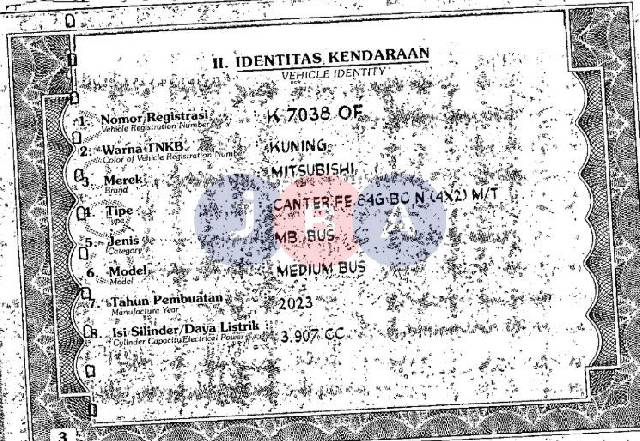 II. IDENTITAS KENDARAAN
VEHICLE IDENTITY
1. Nomor Registrasi K 7038 OF
Vehicle Registration Number
2. Warna TNKB KUNING
Color of Vehicle Registration Number
3. Merek MITSUBISHI
Brand
4. Tipe CANTER FE 84G BC N (4X2) M/T
Type
5. Jenis MB. BUS
Category
6. Model MEDIUM BUS
Model
7. Tahun Pembuatan 2023
Manufacture Year
8. Isi Silinder/Daya Listrik 3.907 CC
Cylinder Capacity/Electrical Power
JBA
3